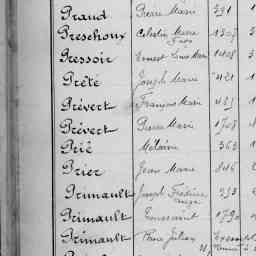 Praud Pierre Marie 391
Preschoux Célestin Marie 1307
Pressoir Ernest Louis Marie 1408
Prêté Joseph Marie 421
Prévert François Marie 421
Prévert Pierre Marie 1708
Prié Mélaine 363
Prier Jean Marie 846
Primault Joseph Frédéric 393
Primault Toussaint 1790
Primault Pierre Julien Exempt